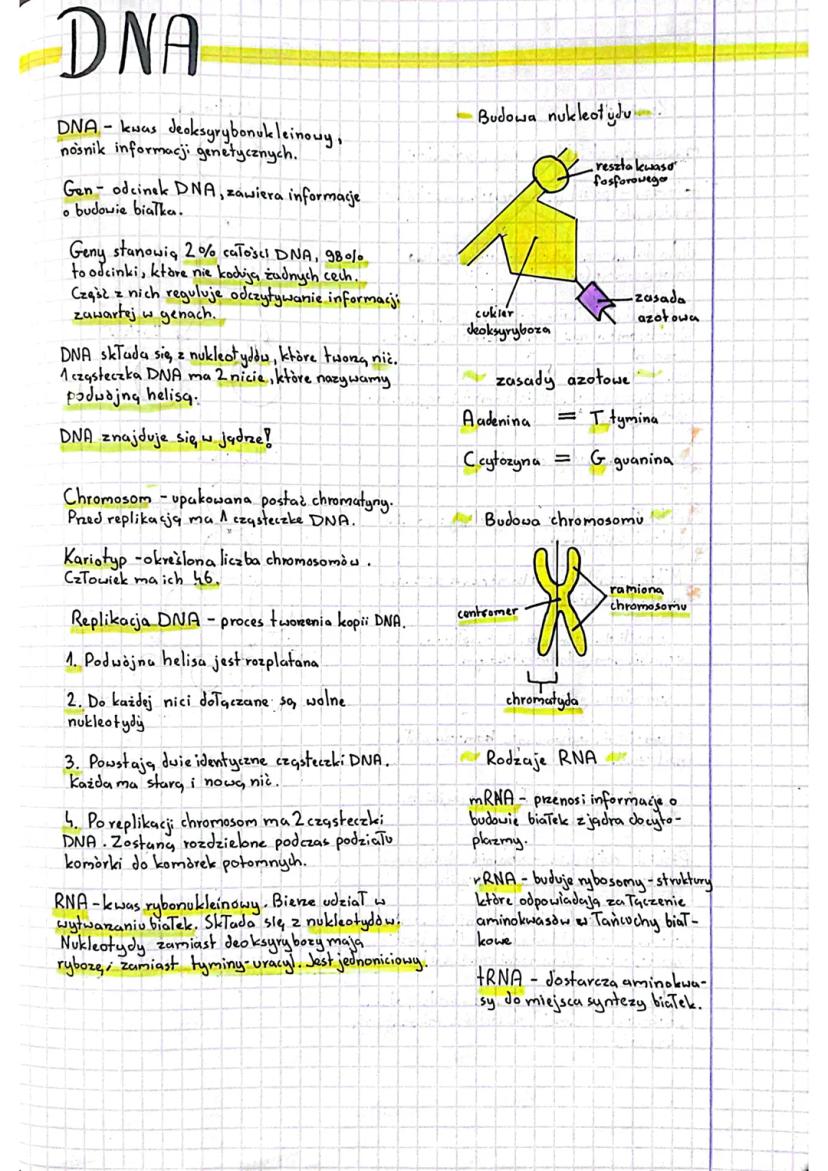 DNA
DNA - kwas deoksyrybonukleinowy,
nośnik informacji genetycznych.
Gen - odcinek DNA, zawiera informacje
o budowie białka.
Geny stanowią 2% całości DNA, 98%
to odcinki, które nie kodują żadnych cech.
Część z nich reguluje odczytywanie informacji
zawartej w genach.
DNA składa się z nukleotydów, które tworzą nić.
1 cząsteczka DNA ma 2 nicie, które nazywamy
podwójną helisą.
DNA znajduje się w jądrze!
Chromosom - upakowana postać chromatyny.
Przed replikacją ma 1 cząsteczke DNA.
Kariotyp - określona liczba chromosomów.
Człowiek ma ich 46.
Replikacja DNA - proces tworzenia kopii DNA.
1. Podwójna helisa jest rozplatana
2. Do każdej nici dołączane są wolne
nukleotydy
3. Powstają dwie identyczne cząsteczki DNA.
Każda ma starą i nową nić.
4. Po replikacji chromosom ma 2 cząsteczki
DNA. Zostaną rozdzielone podczas podziału
komórki do komórek potomnych.
RNA - kwas rybonukleinowy. Bierze udział w
wytwarzaniu białek. Składa się z nukleotydów.
Nukleotydy zamiast deoksyrybozy mają
rybozę, i zamiast tyminy - uracyl. Jest jednoniciowy.
- Budowa nukleotydu -
reszta kwasu
fosforowego
cukier
deoksyryboza
zasada
azotowa
zasady azotowe
A adenina = T tymina
C cytozyna = G guanina
Budowa chromosomu
centromer
ramiona
chromosomu
chromatyda
Rodzaje RNA
mRNA - przenosi informacje o
budowie białek z jądra do cyto-
plazmy.
rRNA - buduje rybosomy - struktury
które odpowiadają za łączenie
aminokwasów w łańcuchy biał-
kowe
tRNA - dostarcza aminokwa-
sy do miejsca syntezy białek.